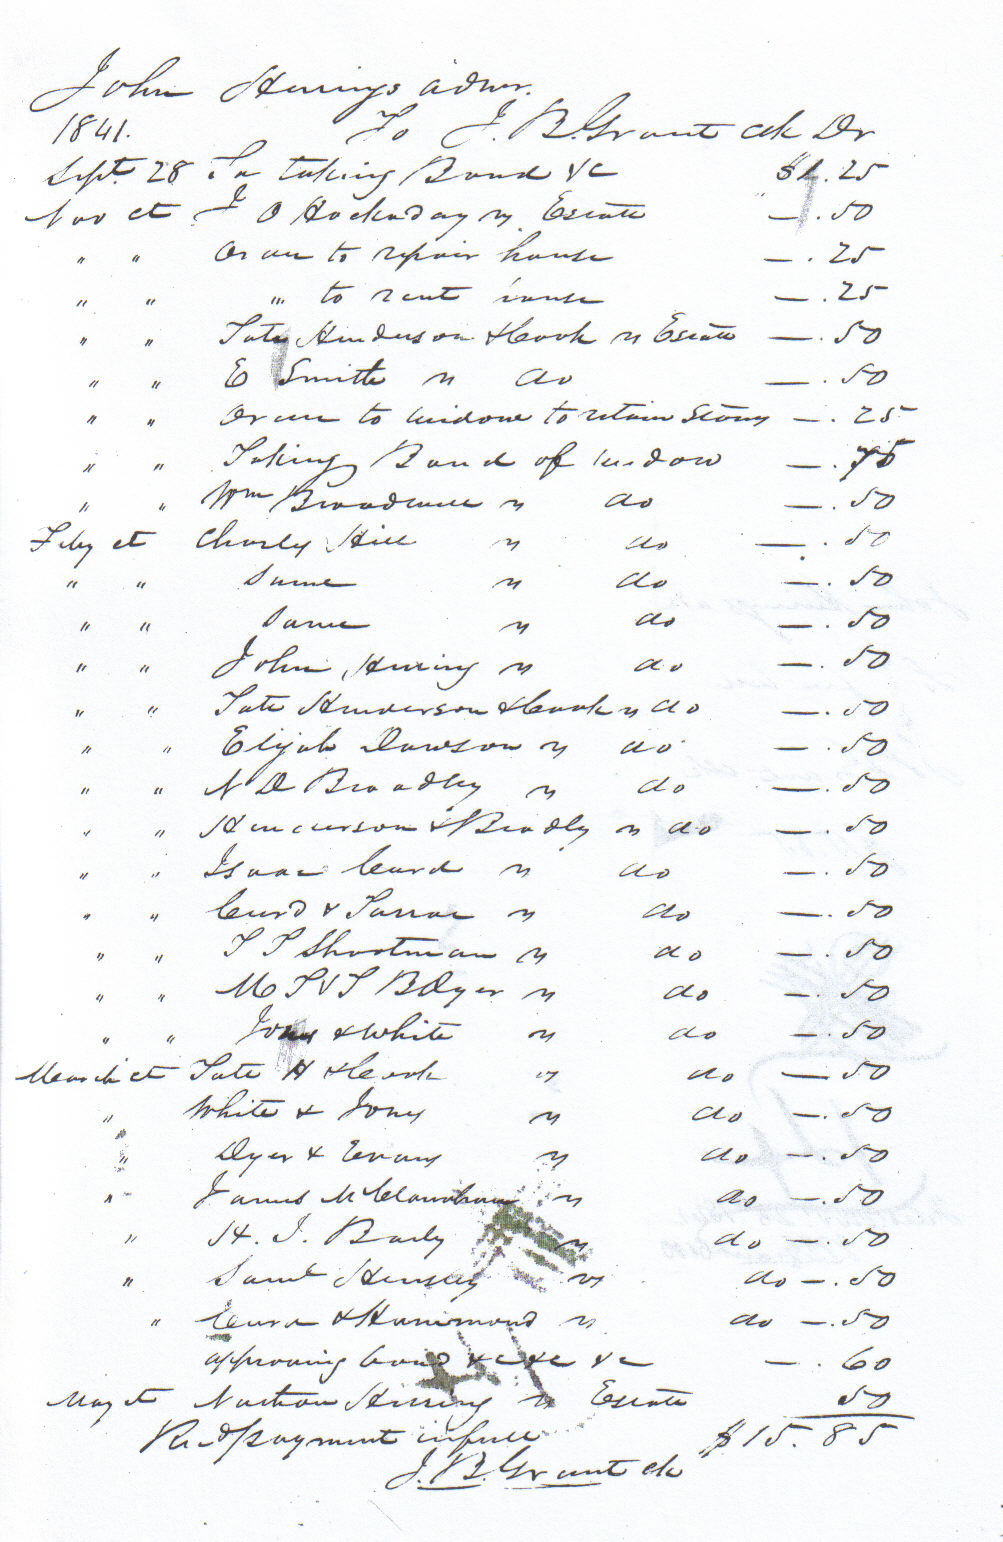 John Herrings admr.
1841. To J. B. Grant clk Dr
Sept. 28 To taking Bond &c $1.25
Nov ct J O Hockaday vs Estate —.50
" " Order to repair house —.25
" " " to rent house —.25
" " Tate Henderson & Cook vs Estate —.50
" " E Smith vs do —.50
" " Order to widow to retain —.25
" " Taking Bond of widow —.75
" " Wm Broadwell vs do —.50
Feby ct Charly Hill vs do —.50
" " Same vs do —.50
" " Same vs do —.50
" " John Herring vs do —.50
" " Tate Henderson & Cook vs do —.50
" " Elijah Dawson vs do —.50
" " N D Bradley vs do —.50
" " Henderson & Bradly vs do —.50
" " Isaac Curd vs do —.50
" " Curd & vs do —.50
" " T T Shortman vs do —.50
" " B Dyer vs do —.50
" " Jones & White vs do —.50
March ct Tate H & Cook vs do —.50
" White & Jones vs do —.50
" Dyer & Evans vs do —.50
" James McClanahan vs do —.50
" H. J. Baily vs do —.50
" Saml Hensley vs do —.50
" Curd & Hammond vs do —.50
approving bond &c &c &c —.60
May ct Nathan Herring vs Estate 50
Recd payment in full $15.85
J. B. Grant clk